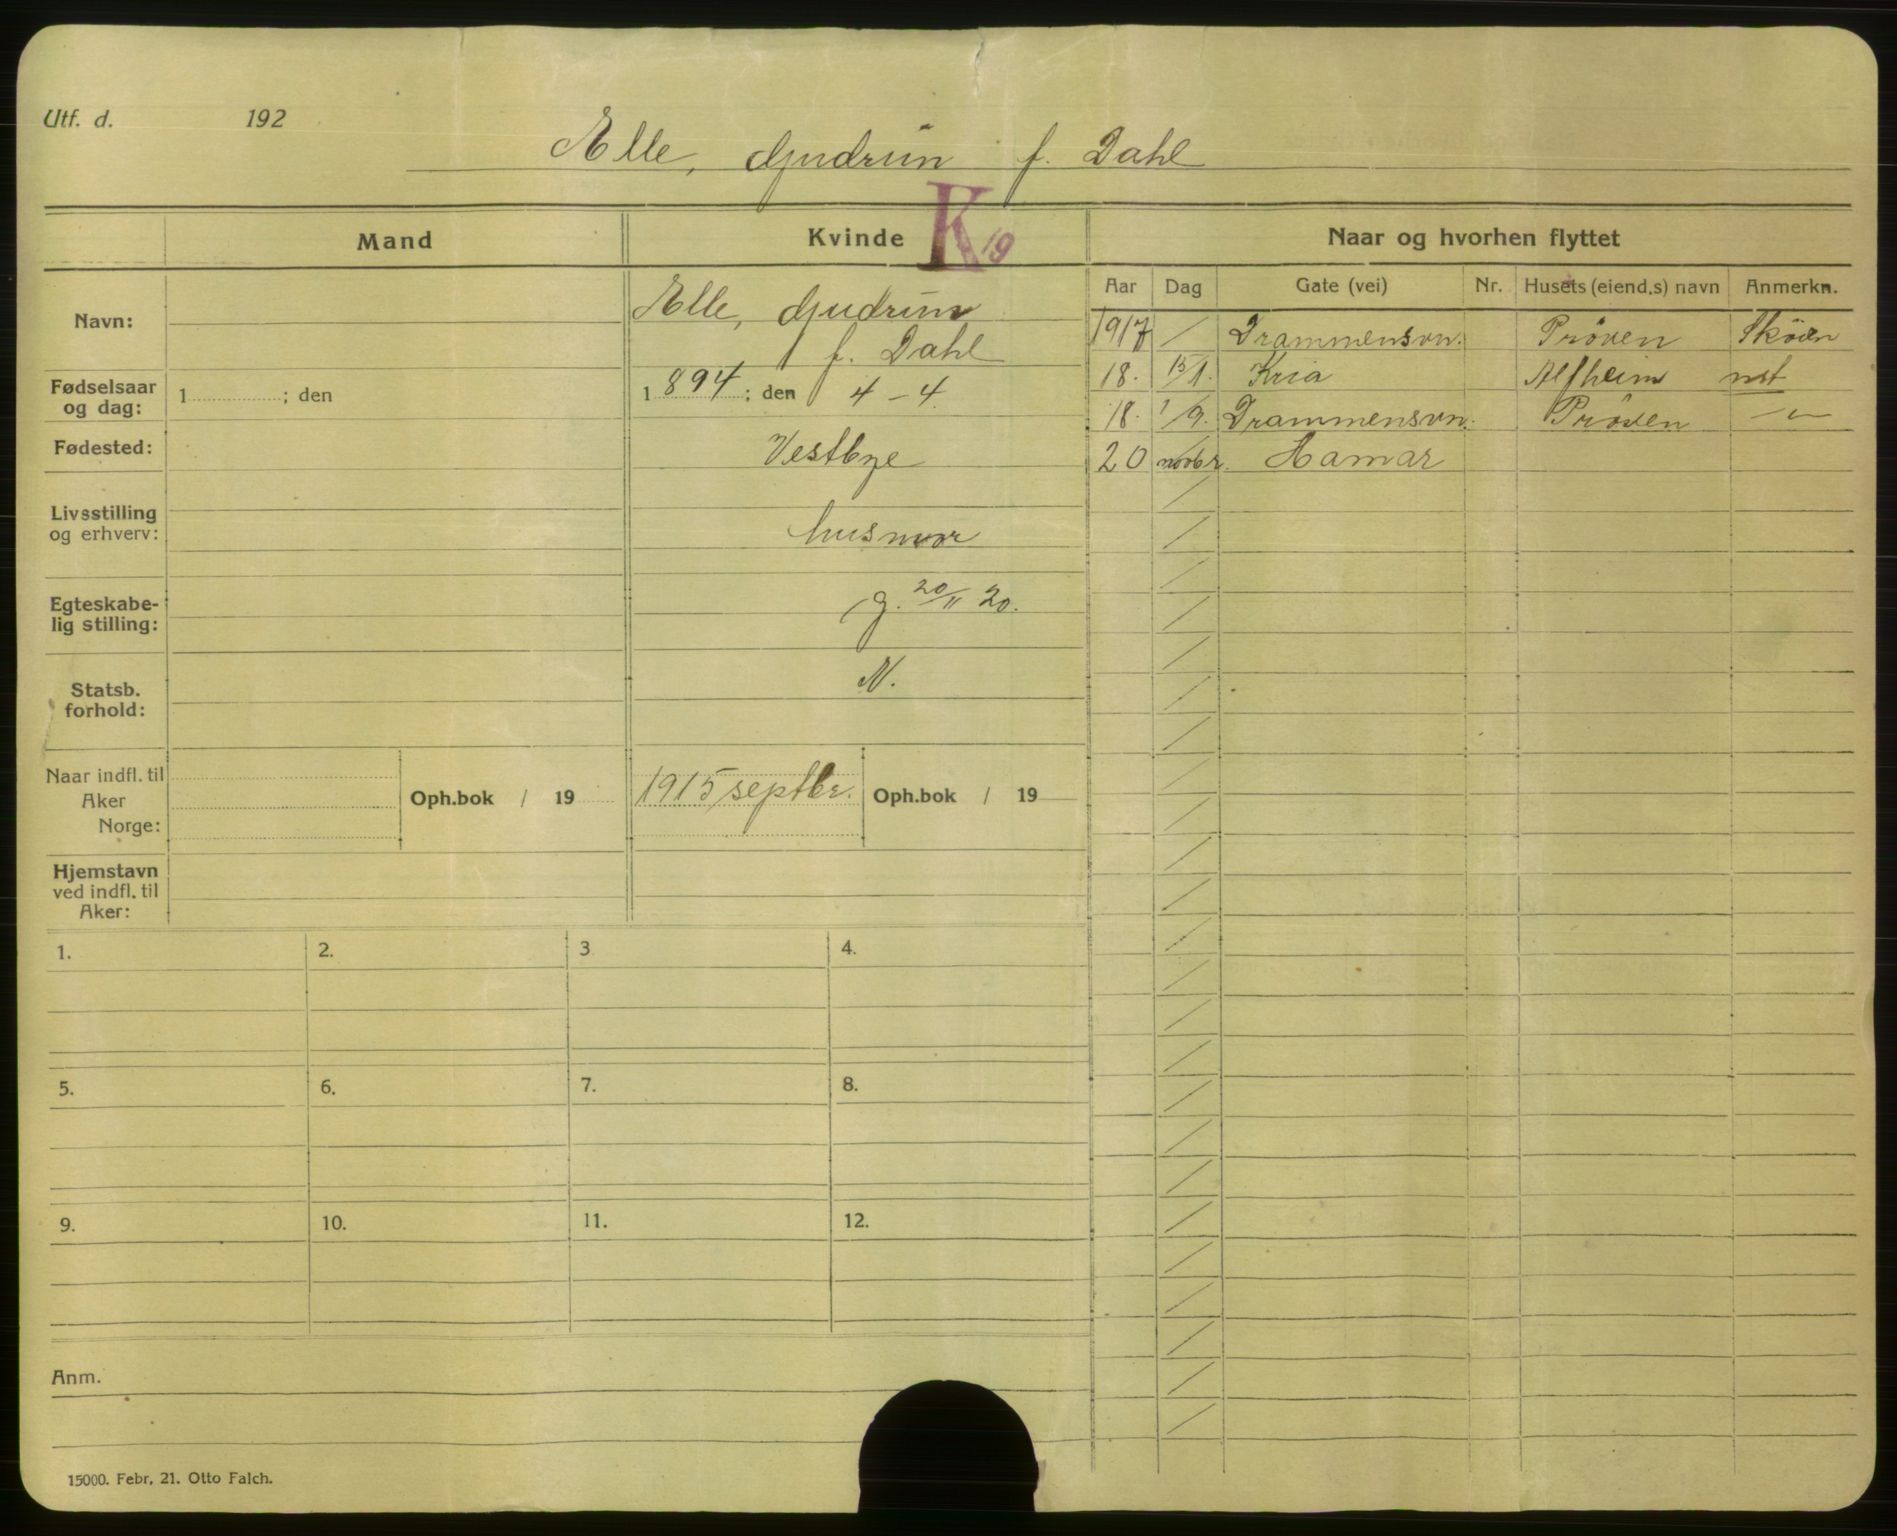 Utf. d. 192
Elle, Gudrun f. Dahl
Mand Kvinde K 19 Naar og hvorhen flyttet
Aar Dag Gate (vei) Nr. Husets (eiend.s) navn Anmerkn.
Navn: Elle, Gudrun
f. Dahl
Fødselsaar
og dag: 1 ; den 1 894 ; den 4 - 4
Fødested: Vestbye
Livsstilling
og erhverv: husmor
Egteskabe-
lig stilling: g. 20/11 20.
Statsb.
forhold: N.
Naar indfl. til
Aker
Norge: Oph.bok / 19 1915 septbr. Oph.bok / 19
Hjemstavn
ved indfl. til
Aker:
1917 / Drammensvn. Prøven Skøien
18. 15/1. Kria Alfheim nst
18. 1/9. Drammensvn. Prøven -"-
20 novbr. Hamar
1. 2. 3 4.
5. 6. 7. 8.
9. 10. 11. 12.
Anm.
15000. Febr. 21. Otto Falch.